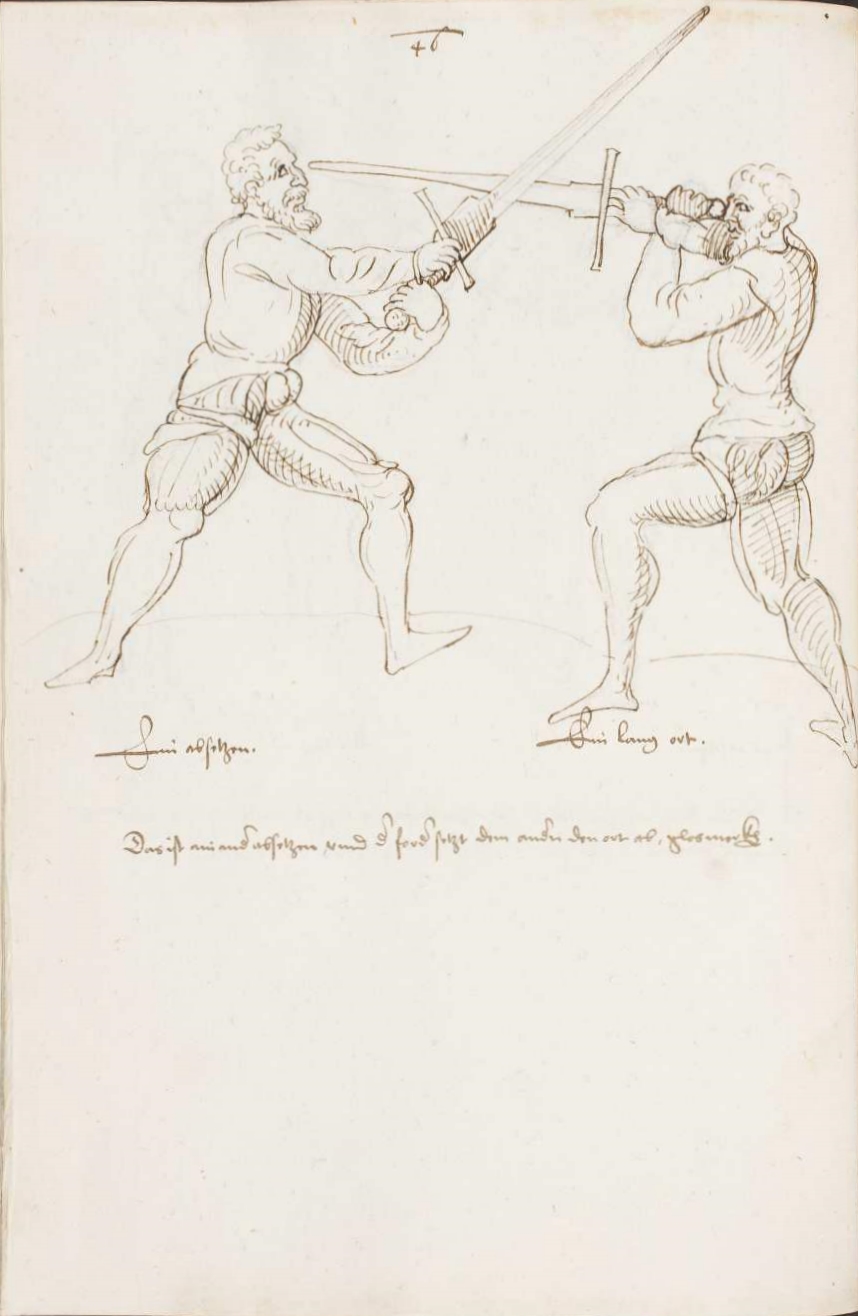 46
Ein absetzen.
Ein lang ort.
Das ist ain and̾ absetzen vnnd d̾ ford̾ setzt dem andn̾ den ort ab,